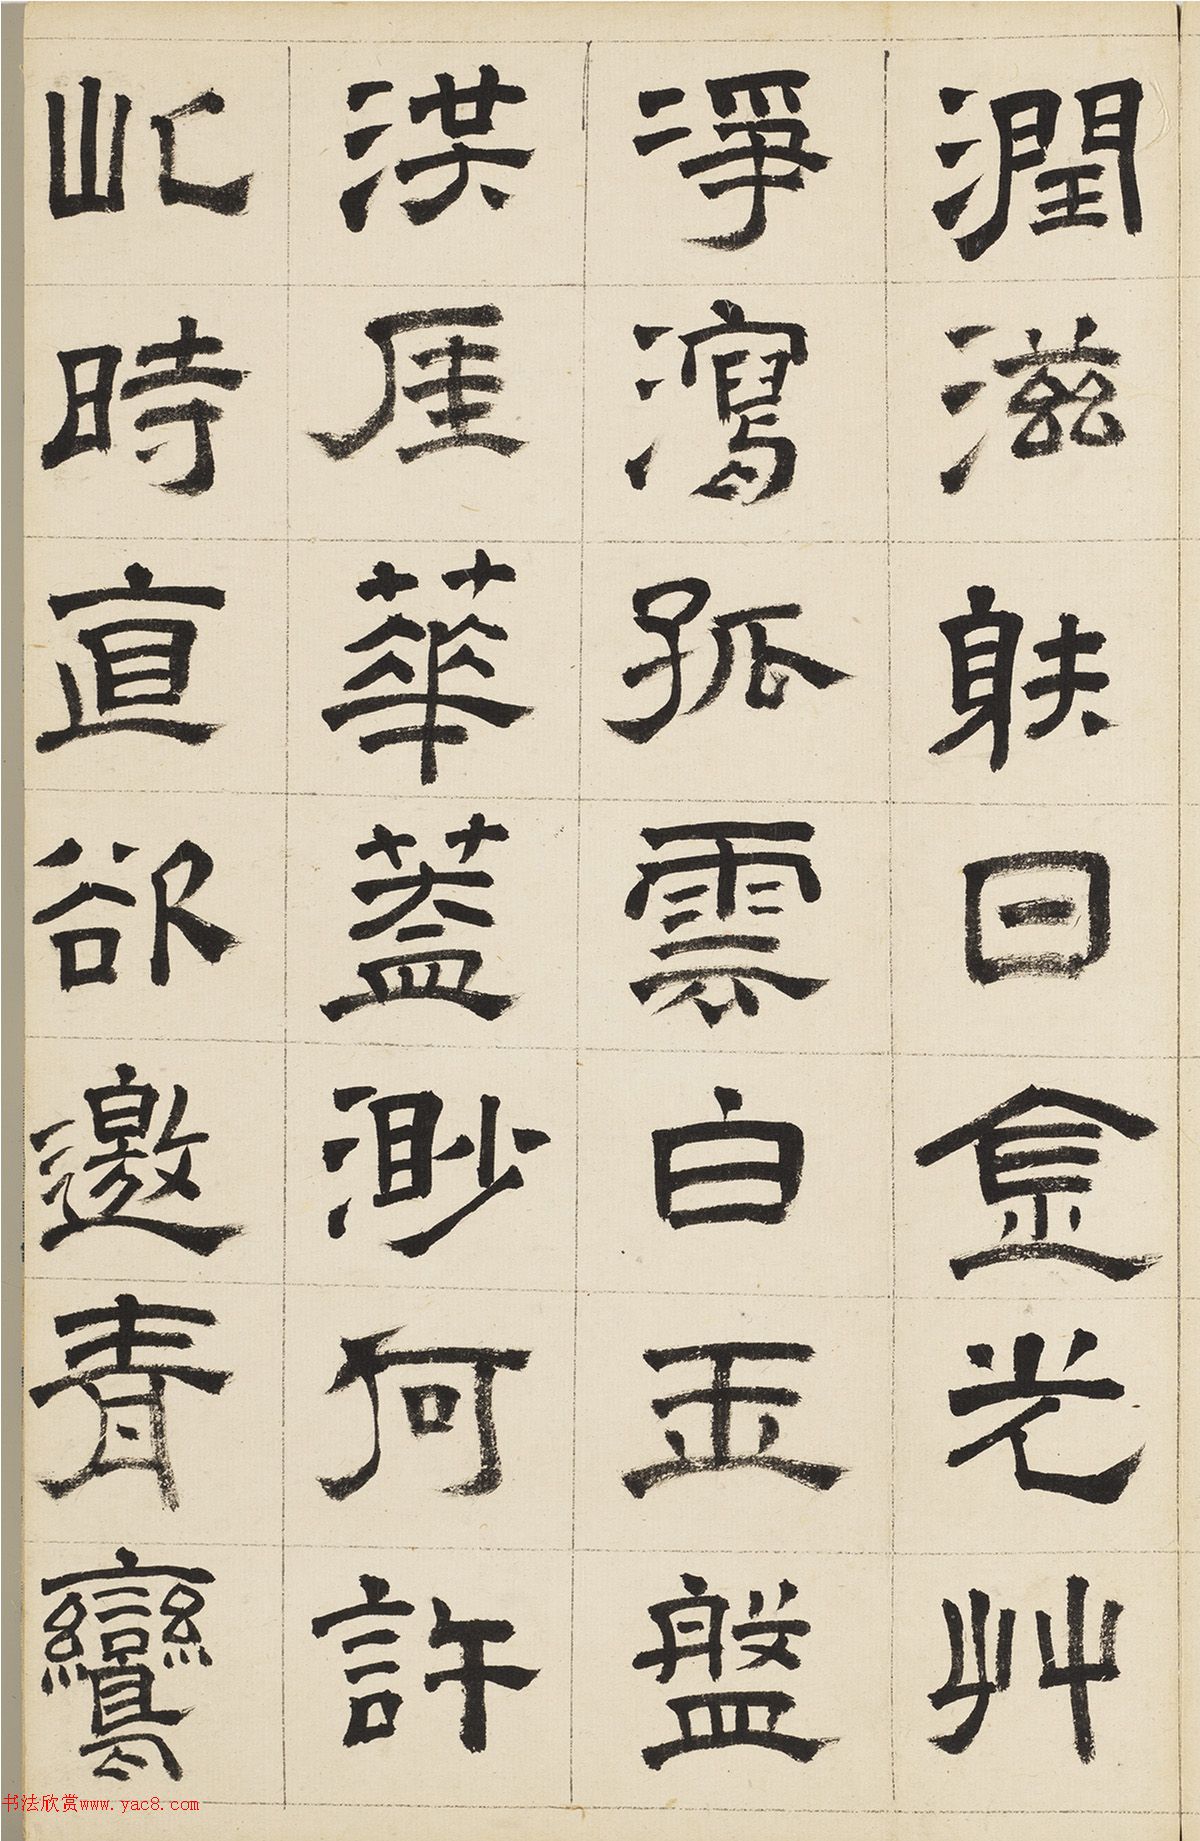 潤滋䠶日金光艸
淨瀉孤雲白玉盤
洪厓華蓋渺何許
此時直欲邀青鸞
书法欣赏www.yac8.com